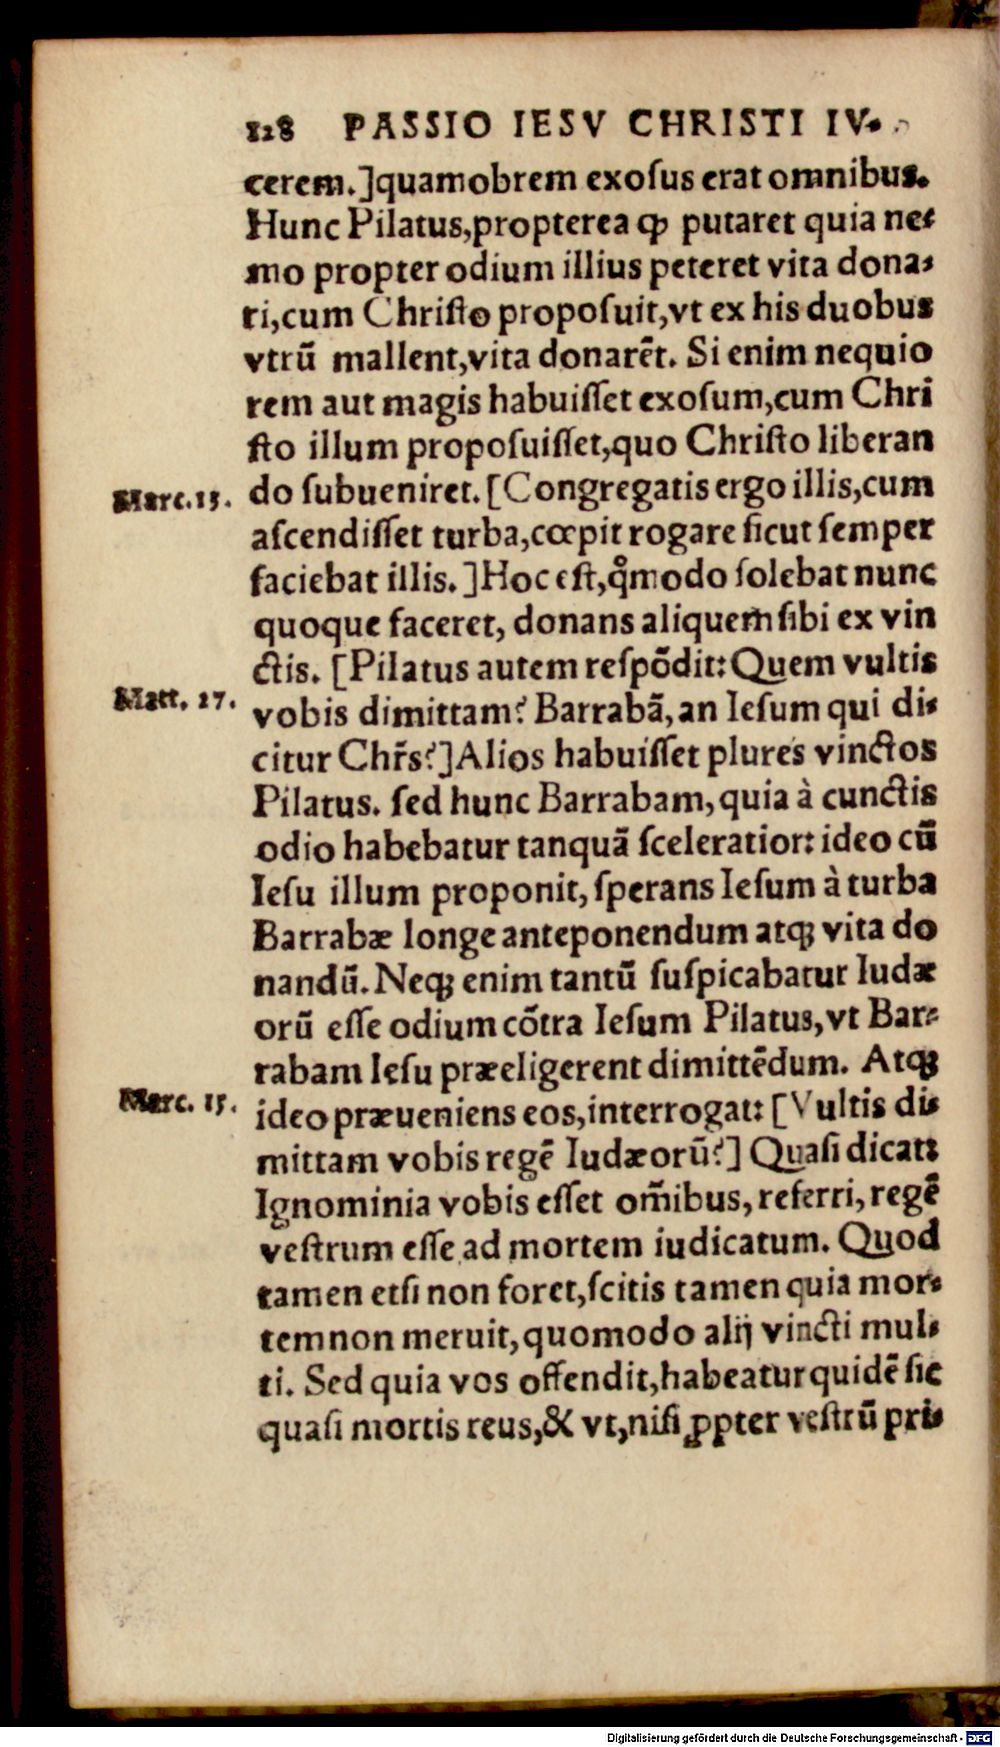 128 PASSIO IESV CHRISTI IV.
cerem.]quamobrem exoſus erat omnibus.
Hunc Pilatus,propterea ꝙ putaret quia ne-
mo propter odium illius peteret vita dona-
ri,cum Chriſto propoſuit,vt ex his duobus
vtrū mallent,vita donarēt. Si enim nequio
rem aut magis habuiſſet exoſum,cum Chri
ſto illum propoſuiſſet,quo Chriſto liberan
Marc.15. do ſubueniret.[Congregatis ergo illis,cum
aſcendiſſet turba,cœpit rogare ſicut ſemper
faciebat illis.]Hoc eſt,qͦmodo ſolebat nunc
quoque faceret, donans aliquem ſibi ex vin
ctis. [Pilatus autem reſpōdit:Quem vultis
Matt. 27. vobis dimittam? Barrabā,an Ieſum qui di-
citur Chr̄s?]Alios habuiſſet plures vinctos
Pilatus. ſed hunc Barrabam,quia à cunctis
odio habebatur tanquā ſceleratior: ideo cū
Ieſu illum proponit, ſperans Ieſum à turba
Barrabæ longe anteponendum atqꝫ vita do
nandū.Neqꝫ enim tantū ſuſpicabatur Iudæ
orū eſſe odium cōtra Ieſum Pilatus,vt Bar-
rabam Ieſu præeligerent dimittēdum. Atqꝫ
Marc. 15. ideo præueniens eos,interrogat: [Vultis di-
mittam vobis regē Iudæorū?] Quaſi dicat:
Ignominia vobis eſſet om̄ibus, referri, regē
veſtrum eſſe ad mortem iudicatum. Quod
tamen etſi non foret,ſcitis tamen quia mor-
tem non meruit,quomodo alij vincti mul-
ti. Sed quia vos offendit,habeatur quidē ſic
quaſi mortis reus,& vt,niſi ꝓpter veſtrū pri-
Digitalisierung gefördert durch die Deutsche Forschungsgemeinschaft - DFG